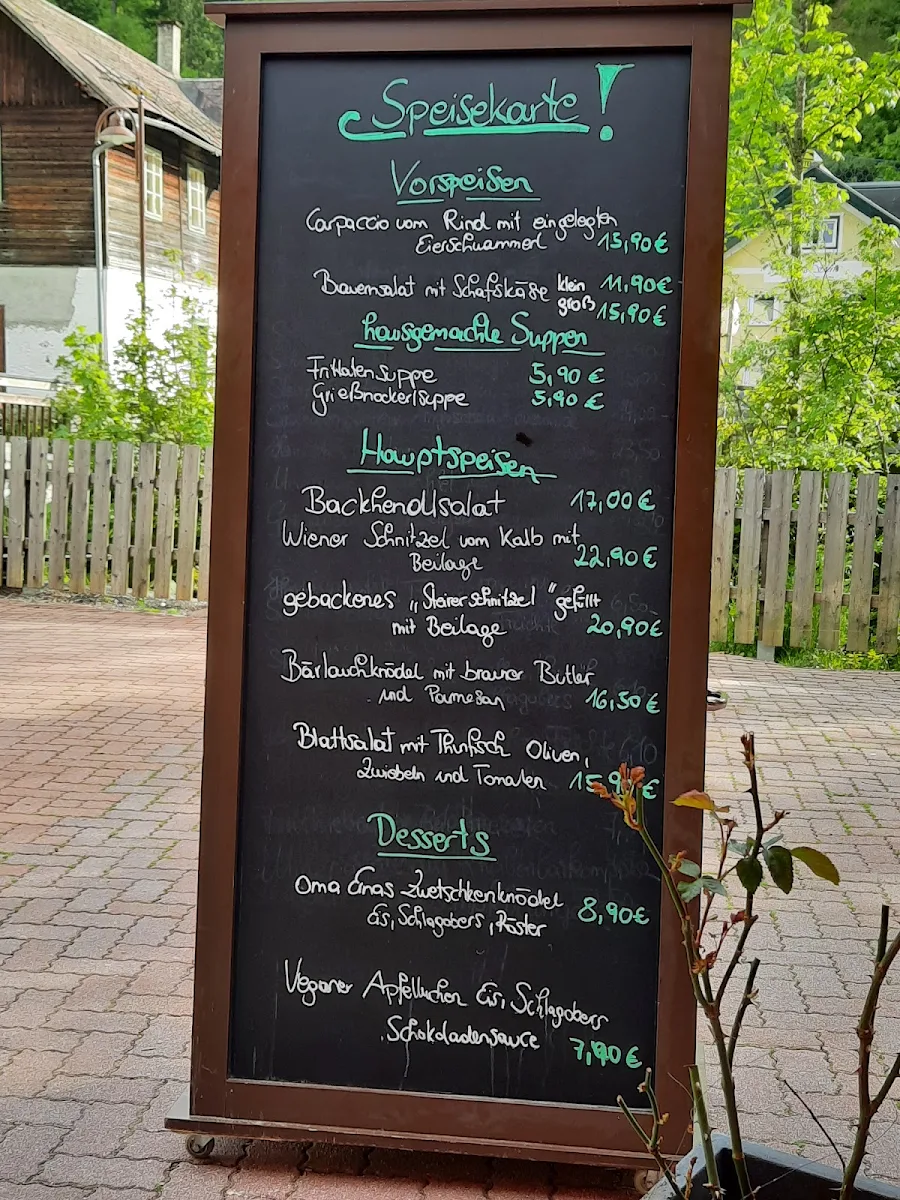 Speisekarte!
Vorspeisen
Carpaccio vom Rind mit eingelegten
Eierschwammerl 15,90€
Bauernsalat mit Schafskäse klein 11,90€
groß 15,90€
hausgemachte Suppen
Frittatensuppe 5,90€
Grießnockerlsuppe 5,90€
Hauptspeisen
Backhendlsalat 17,00€
Wiener Schnitzel vom Kalb mit
Beilage 22,90€
gebackenes „Steirerschnitzel" gefüllt
mit Beilage 20,90€
Bärlauchknödel mit brauner Butter
und Parmesan 16,50€
Blattsalat mit Thunfisch Oliven,
Zwiebeln und Tomaten 15,90€
Desserts
Oma Ernas Zwetschkenknödel
Eis, Schlagobers, Röster 8,90€
Veganer Apfelkuchen Eis, Schlagobers
Schokoladensauce